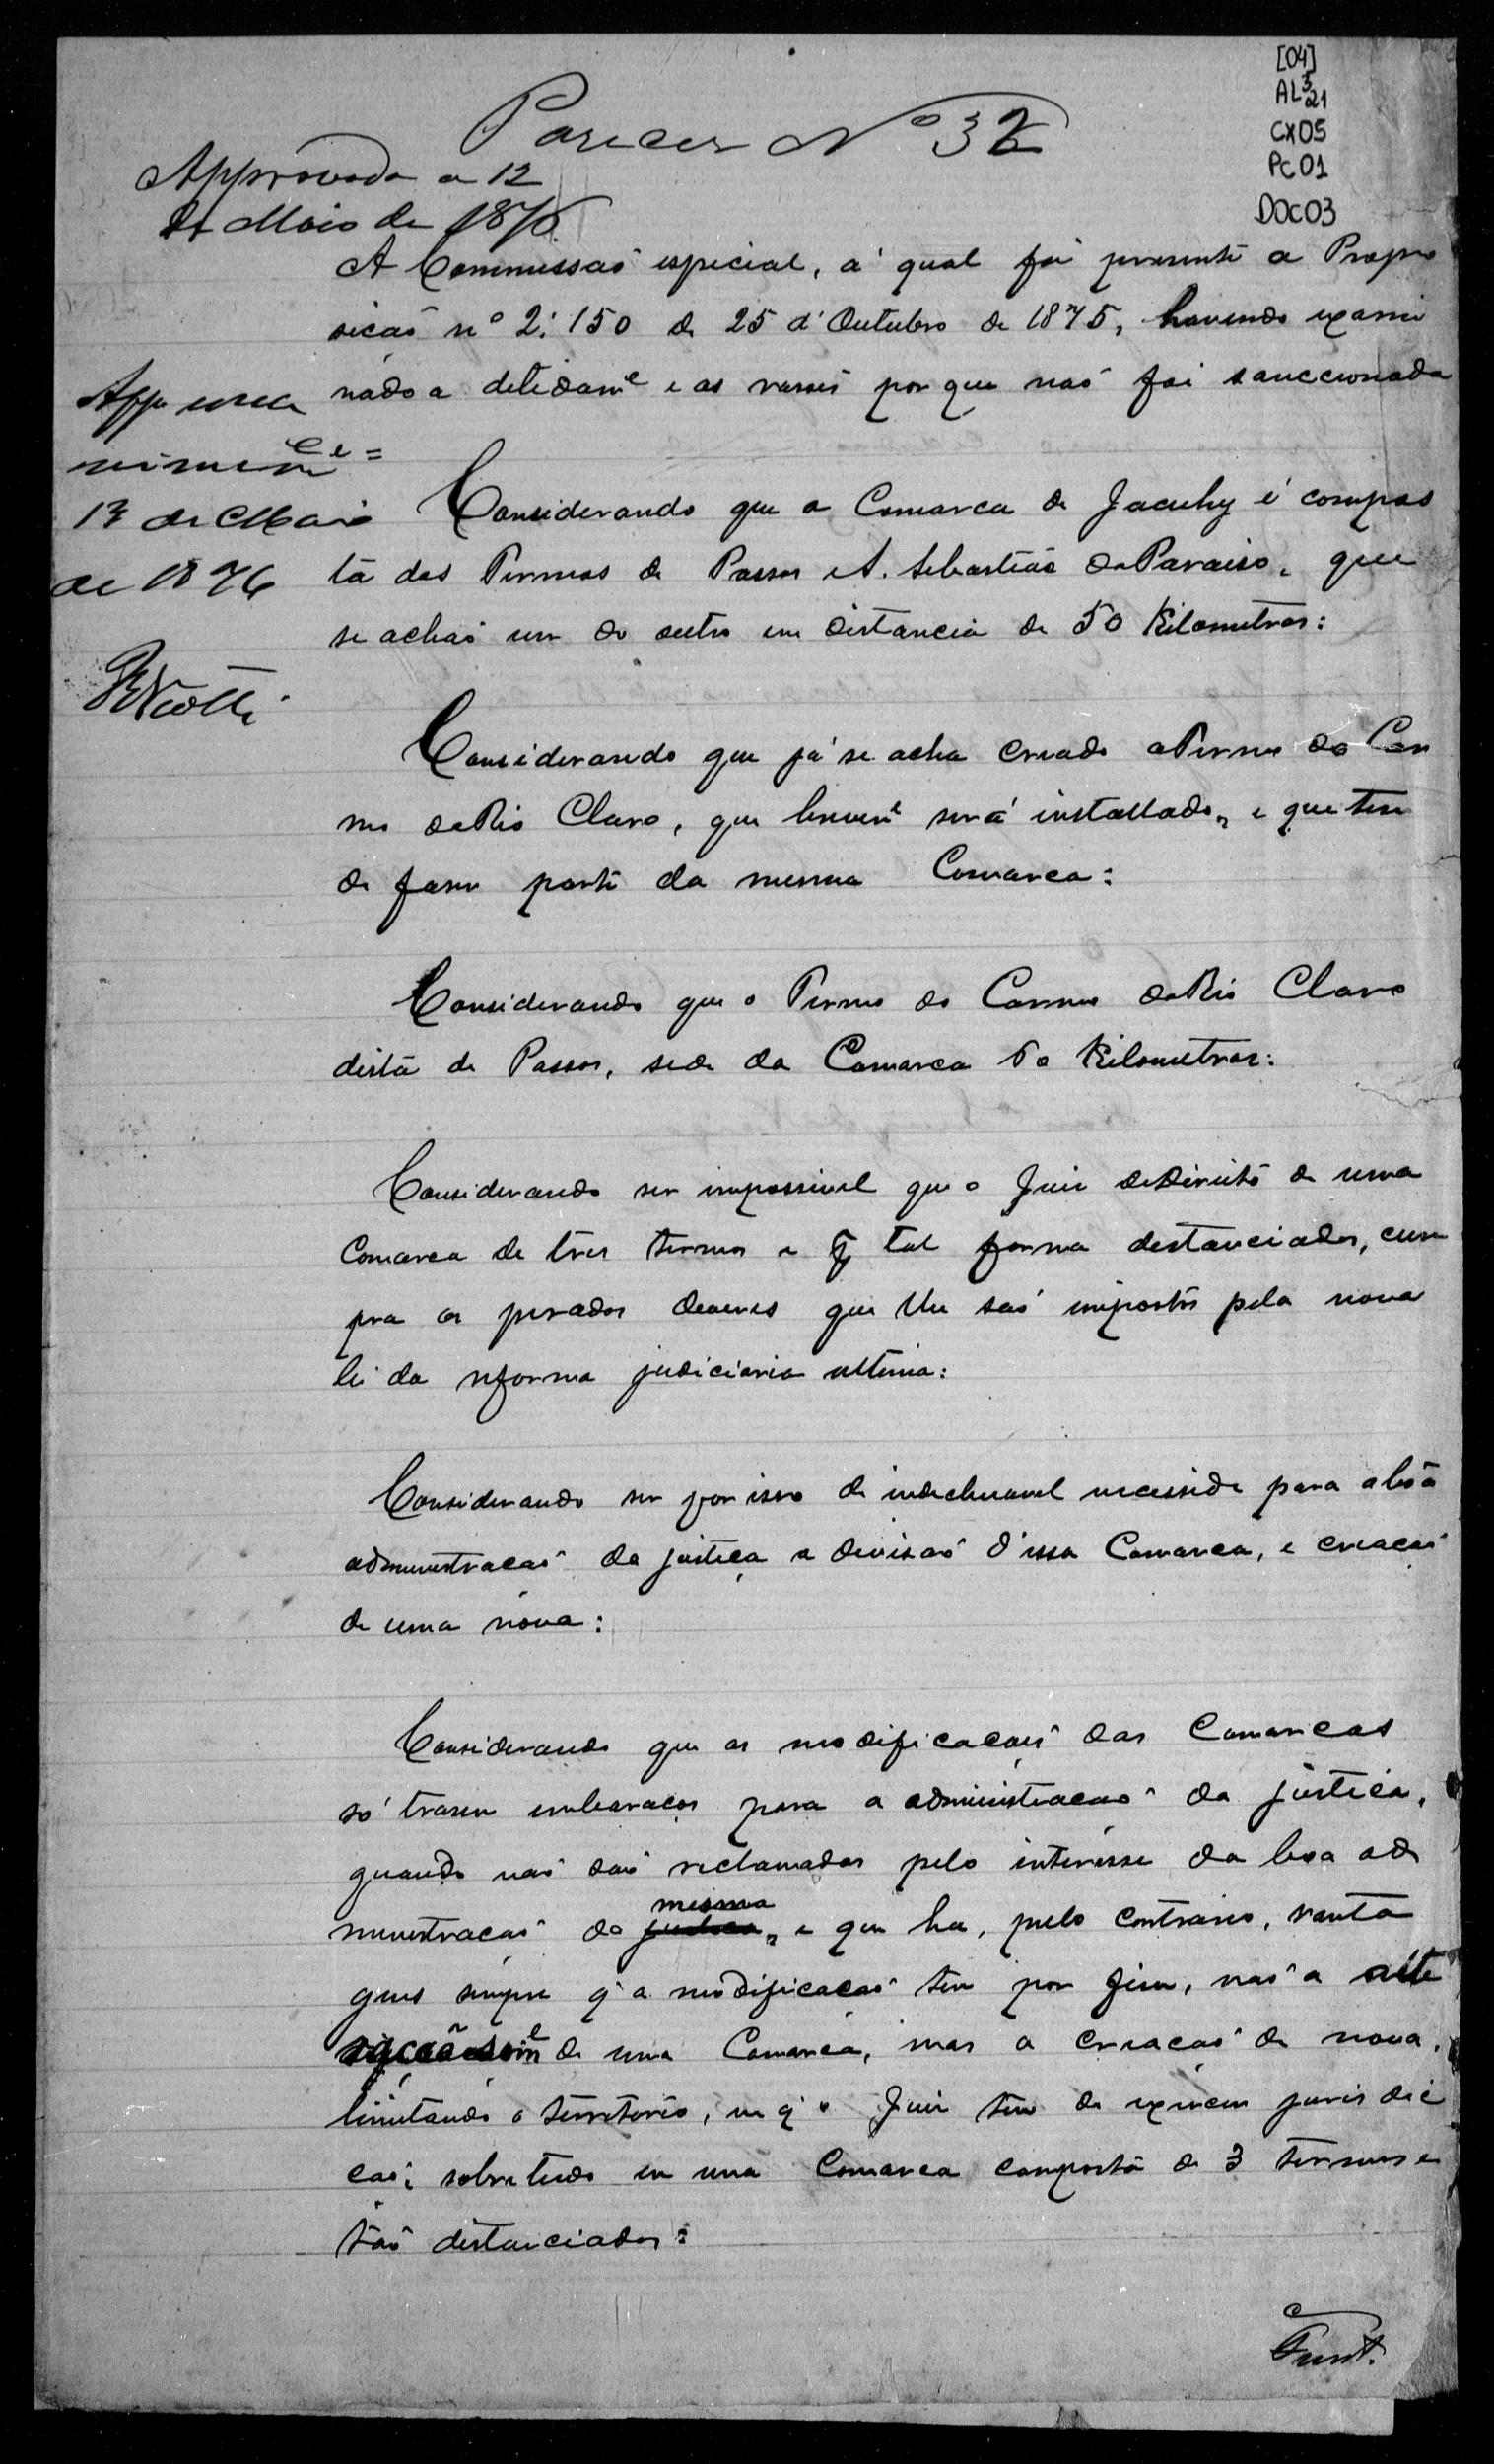 [04]
AL³21
CX05
PC01
DOC03
Parecer Nº 32
Approvado a 12
de Maio de 1876.
A Commissaõ especial, á qual foi presente a Propo
sicaõ nº 2:150 de 25 d'Outubro de 1875, havendo exami
nado a detidamᵉ e as rasoẽs por que naõ foi sanccionada
App unan
nimemᵉ =
13 de Maio
de 1876
Considerando que a Comarca de Jacuhy é compos
ta dos Termos de Passos e S. Sebastiaõ do Paraiso, que
se achaõ um do outro em distancia de 50 Kilometros:
Considerando que já se acha creado o Termo do Car
mo do Rio Claro, que brevemᵉ será installado, e que tem
de faser parte da mesma Comarca:
Considerando que o Termo do Carmo do Rio Claro
dista de Passos, sede da Comarca 50 Kilometros:
Considerando ser impossivel que o Juiz de Direito de uma
Comarca de tres termos e de tal forma destanciados, cum
pra os pesados deveres que lhe saõ impostos pela nova
lei da reforma judiciaria ultima:
Considerando ser por isso de indeclinavel necesside para a bôa
administracaõ da justiça a divisaõ d'essa Comarca, e creaçaõ
de uma nova:
Considerando que as modificaçoẽs das Comarcas
só trasem embaraços para a administracaõ da justiça,
quando naõ saõ reclamadas pelo interesse da boa ad
ministracaõ da mesma, e que ha, pelo contrario, vanta
gens sempre q' a modificacaõ tem por fim, naõ a
de uma Comarca, mas a creacaõ de nova,
limitando o territorio, em q' o Juiz tem de exercer juris dic
caõ, sobretudo em uma Comarca composta de 3 termos e
taõ distanciados: